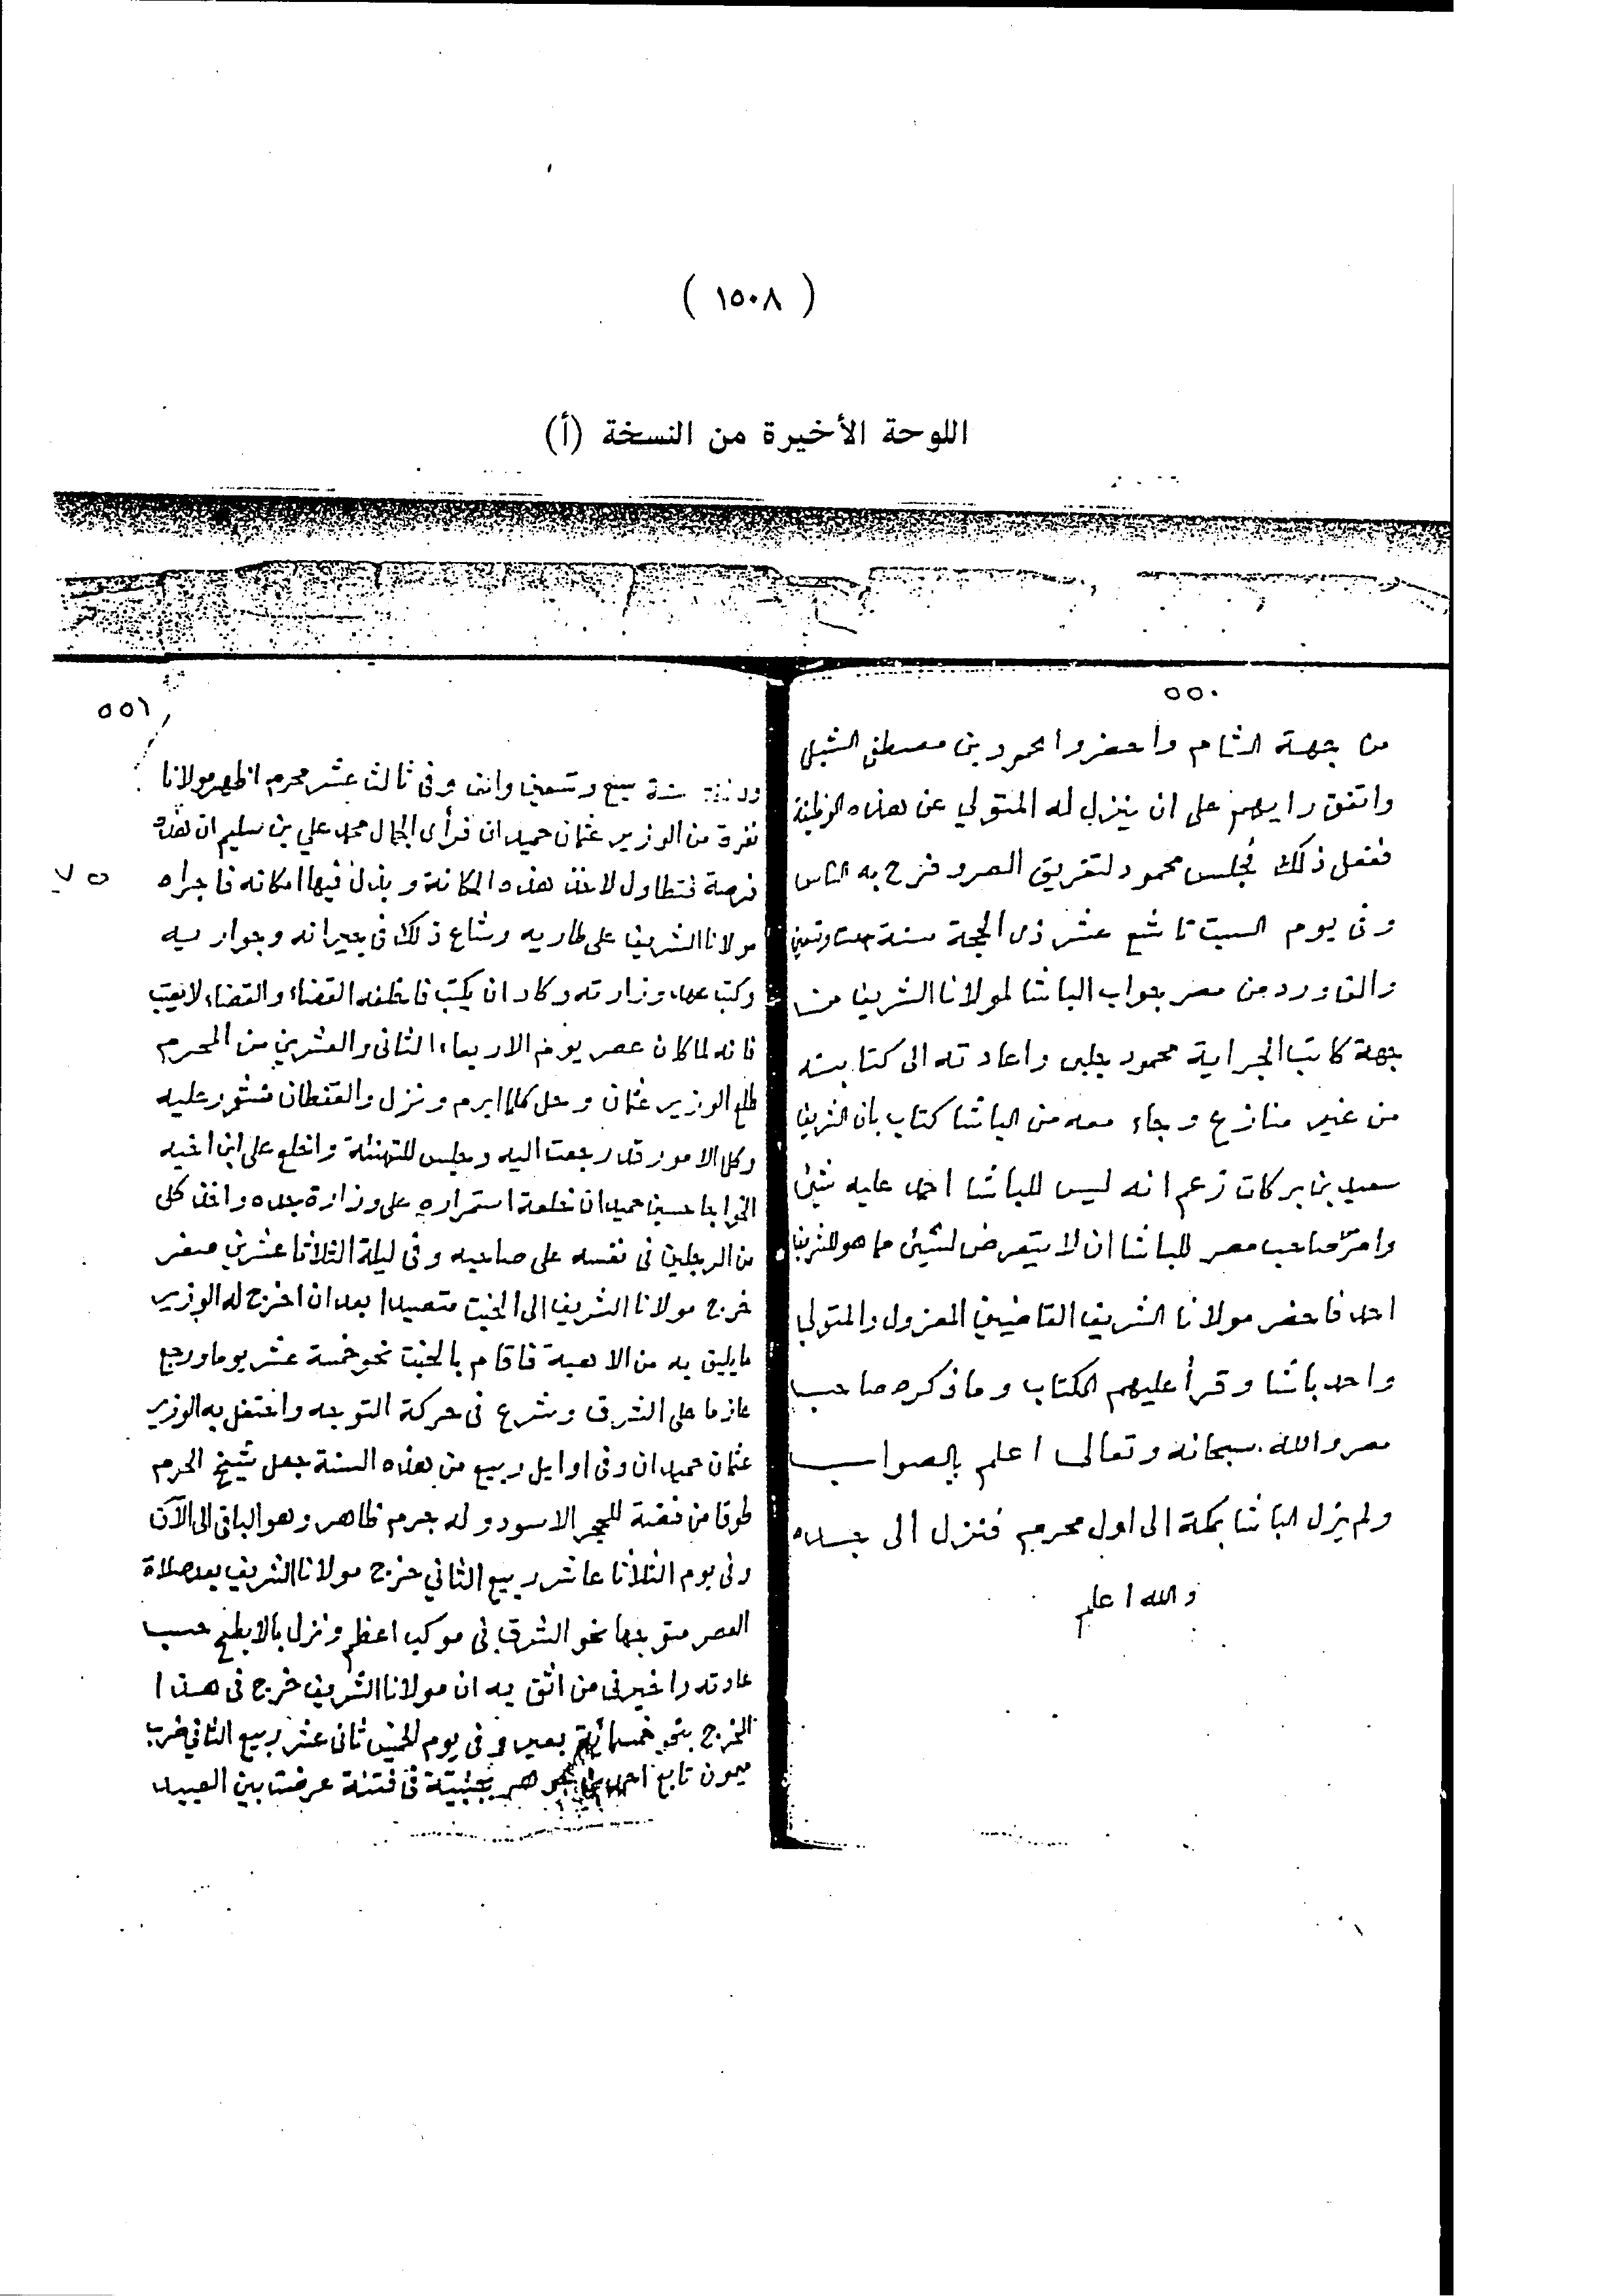 ( ١٥٠٨ )
اللوحة الأخيرة من النسخة (أ)
٥٥٠
من جهة الشام واحضروا محمود بن مصطفى الشيبي
واتفق رايهم على ان ينزل له المتولي عن هذه الوظيفة
ففعل ذلك فجلس محمود لتفريق الصر وفرح به الناس
وفى يوم السبت تاسع عشر ذى الحجة سنة ست وتسعين
والف ورد من مصر جواب الباشا لمولانا الشريف من
جهة كاتب الجراية محمود جلبى واعادته الى كتابته
من غير منازع وجاء معه من الباشا كتاب بان الشريف
سعيد بن بركات زعم انه ليس للباشا احمد عليه شئ
وامر صاحب مصر للباشا ان لا يتعرض لشيئ مما هو للشريف
احمد فاحضر مولانا الشريف القاضيين المعزول والمتولي
واحمد باشا وقرأ عليهم الكتاب وما ذكره صاحب
مصر والله سبحانه وتعالى اعلم بالصواب
ولم يزل الباشا بمكة الى اول محرم فنزل الى جده
والله اعلم
٥٥١
سنة سبع وتسعين والف وفى ثالث عشر محرم اظهر مولانا
نفرة من الوزير عثمان حميدان فرأى الجمال محمد علي بن سليم ان هذه
فرصة فتطاول لاخذ هذه المكانة وبذل فيها امكانه فاجراه
مولانا الشريف على طاريه وشاع ذلك فى جيرانه وجواريه
وكتب عهد وزارته وكاد ان يكتب فاخلفه القضاء والقضاء لايعتب
فانه لما كان عصر يوم الاربعاء الثانى والعشرين من المحرم
طلع الوزير عثمان وحل كلما ابرم ونزل والقفطان منشور عليه
وكل الامور قد رجعت اليه وجلس للتهنئة واخلع على ابن اخيه
الخواجا حسين حميدان خلعة استمراره على وزارة جده واخذ كل
من الرجلين فى نفسه على صاحبه وفى ليلة الثلاثا عشرين صفر
خرج مولانا الشريف الى الخبت متصيدا بعد ان اخرج له الوزير
ما يليق به من الاهبة فاقام بالخبت نحو خمسة عشر يوما ورجع
عازما على الشرق وشرع فى حركة التوجه واحتفل به الوزير
عثمان حميدان وفى اوايل ربيع من هذه السنة جعل شيخ الحرم
طوقا من فضة للحجر الاسود وله جرم ظاهر وهو الباقى الى الآن
وفى يوم الثلاثا عاشر ربيع الثاني خرج مولانا الشريف بعد صلاة
العصر متوجها نحو الشرق فى موكب اعظم ونزل بالابطح حسب
عادته واخبرنى من اثق به ان مولانا الشريف خرج فى هذا
الخرج بنحو خمسمائة بعير وفى يوم الخميس ثانى عشر ربيع الثاني ضرب
ميمون تابع احمد بن جوهر بجنبية فى فتنة عرضت بين العبيد